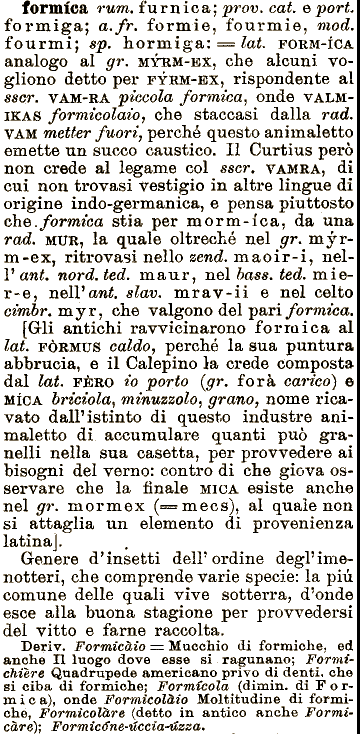 formíca rum. furnica; prov. cat. e port.
formiga; a.fr. formie, fourmie, mod.
fourmi; sp. hormiga: = lat. FORM-ÍCA
analogo al gr. MÝRM-EX, che alcuni vo-
gliono detto per FÝRM-EX, rispondente al
sscr. VAM-RA piccola formica, onde VALM-
IKAS formicolaio, che staccasi dalla rad.
VAM metter fuori, perché questo animaletto
emette un succo caustico. Il Curtius però
non crede al legame col sscr. VAMRA, di
cui non trovasi vestigio in altre lingue di
origine indo-germanica, e pensa piuttosto
che formica stia per morm-íca, da una
rad. MUR, la quale oltreché nel gr. mýr-
m-ex, ritrovasi nello zend. maoir-i, nel-
l'ant. nord. ted. maur, nel bass. ted. mie-
r-e, nell'ant. slav. mrav-ii e nel celto
cimbr. myr, che valgono del pari formica.
[Gli antichi ravvicinarono formica al
lat. FÒRMUS caldo, perché la sua puntura
abbrucia, e il Calepino la crede composta
dal lat. FÈRO io porto (gr. forà carico) e
MÍCA briciola, minuzzolo, grano, nome rica-
vato dall'istinto di questo industre ani-
maletto di accumulare quanti può gra-
nelli nella sua casetta, per provvedere ai
bisogni del verno: contro di che giova os-
servare che la finale MICA esiste anche
nel gr. mormex (= mecs), al quale non
si attaglia un elemento di provenienza
latina].
Genere d'insetti dell'ordine degl'ime-
notteri, che comprende varie specie: la piú
comune delle quali vive sotterra, d'onde
esce alla buona stagione per provvedersi
del vitto e farne raccolta.
Deriv. Formicàio = Mucchio di formiche, ed
anche Il luogo dove esse si ragunano; Formi-
chière Quadrupede americano privo di denti. che
si ciba di formiche; Formícola (dimin. di For-
mica), onde Formicolàio Moltitudine di formi-
che, Formicolàre (detto in antico anche Formi-
càre); Formicóne-úccia-úzza.